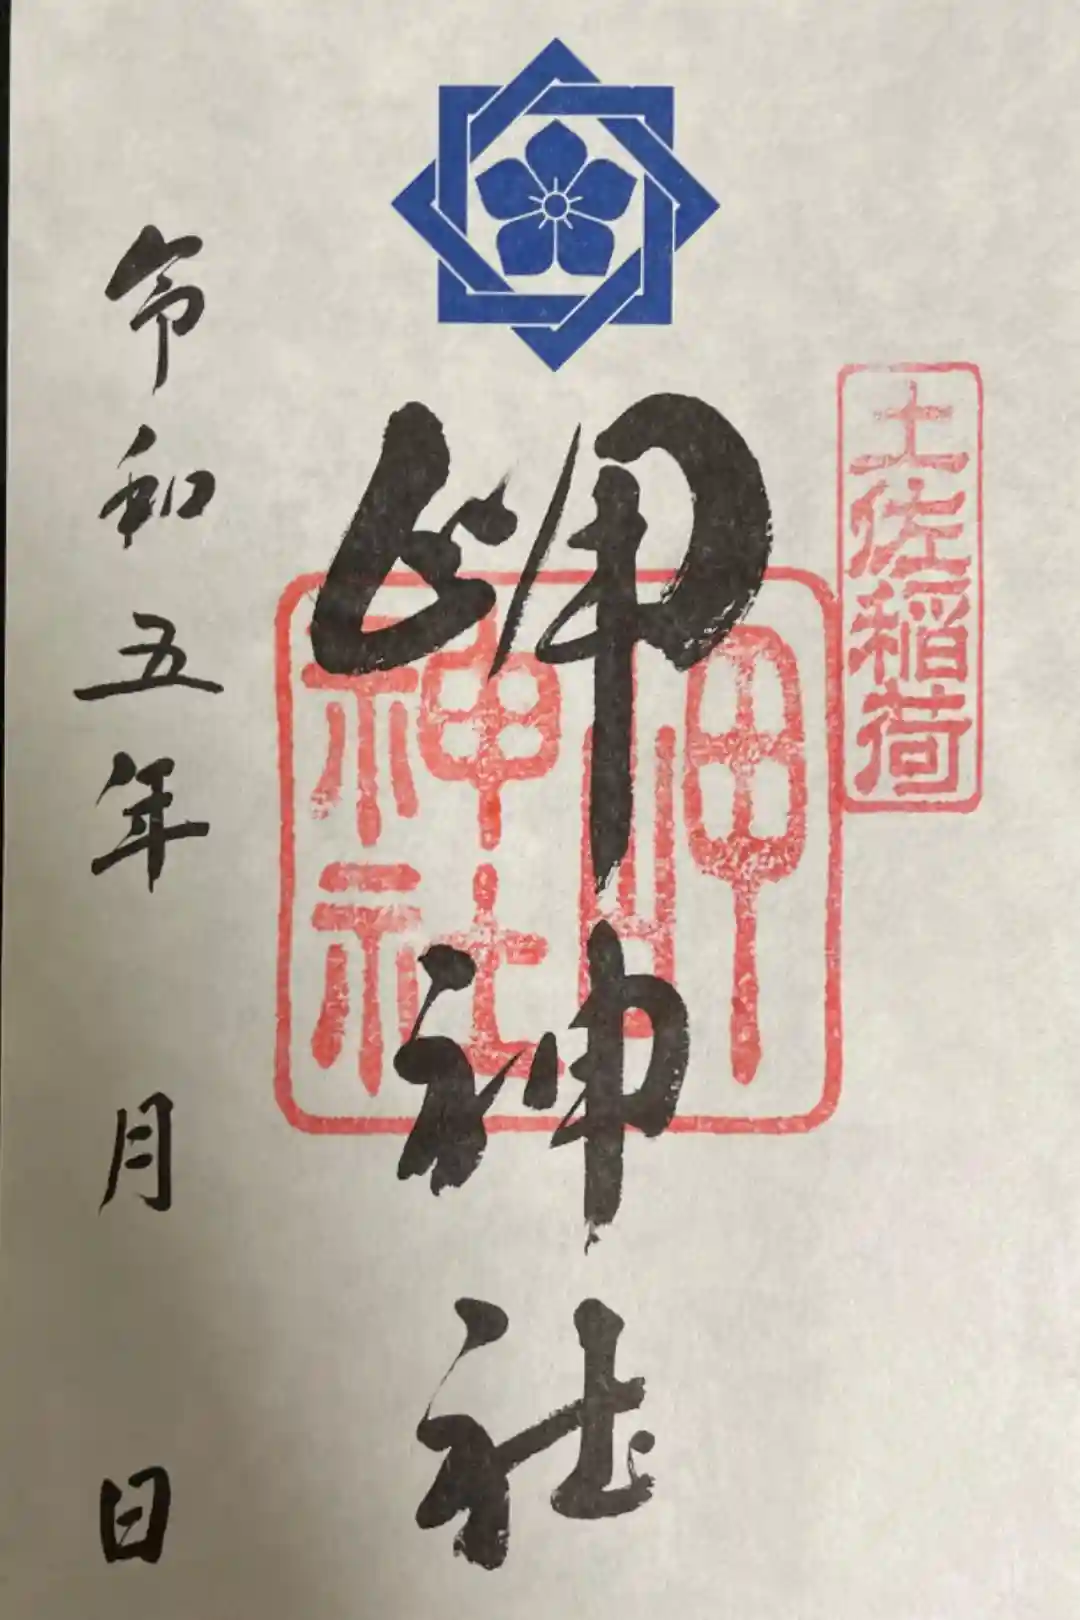 土佐稲荷
岬神社
岬
神社
令和五年 月 日